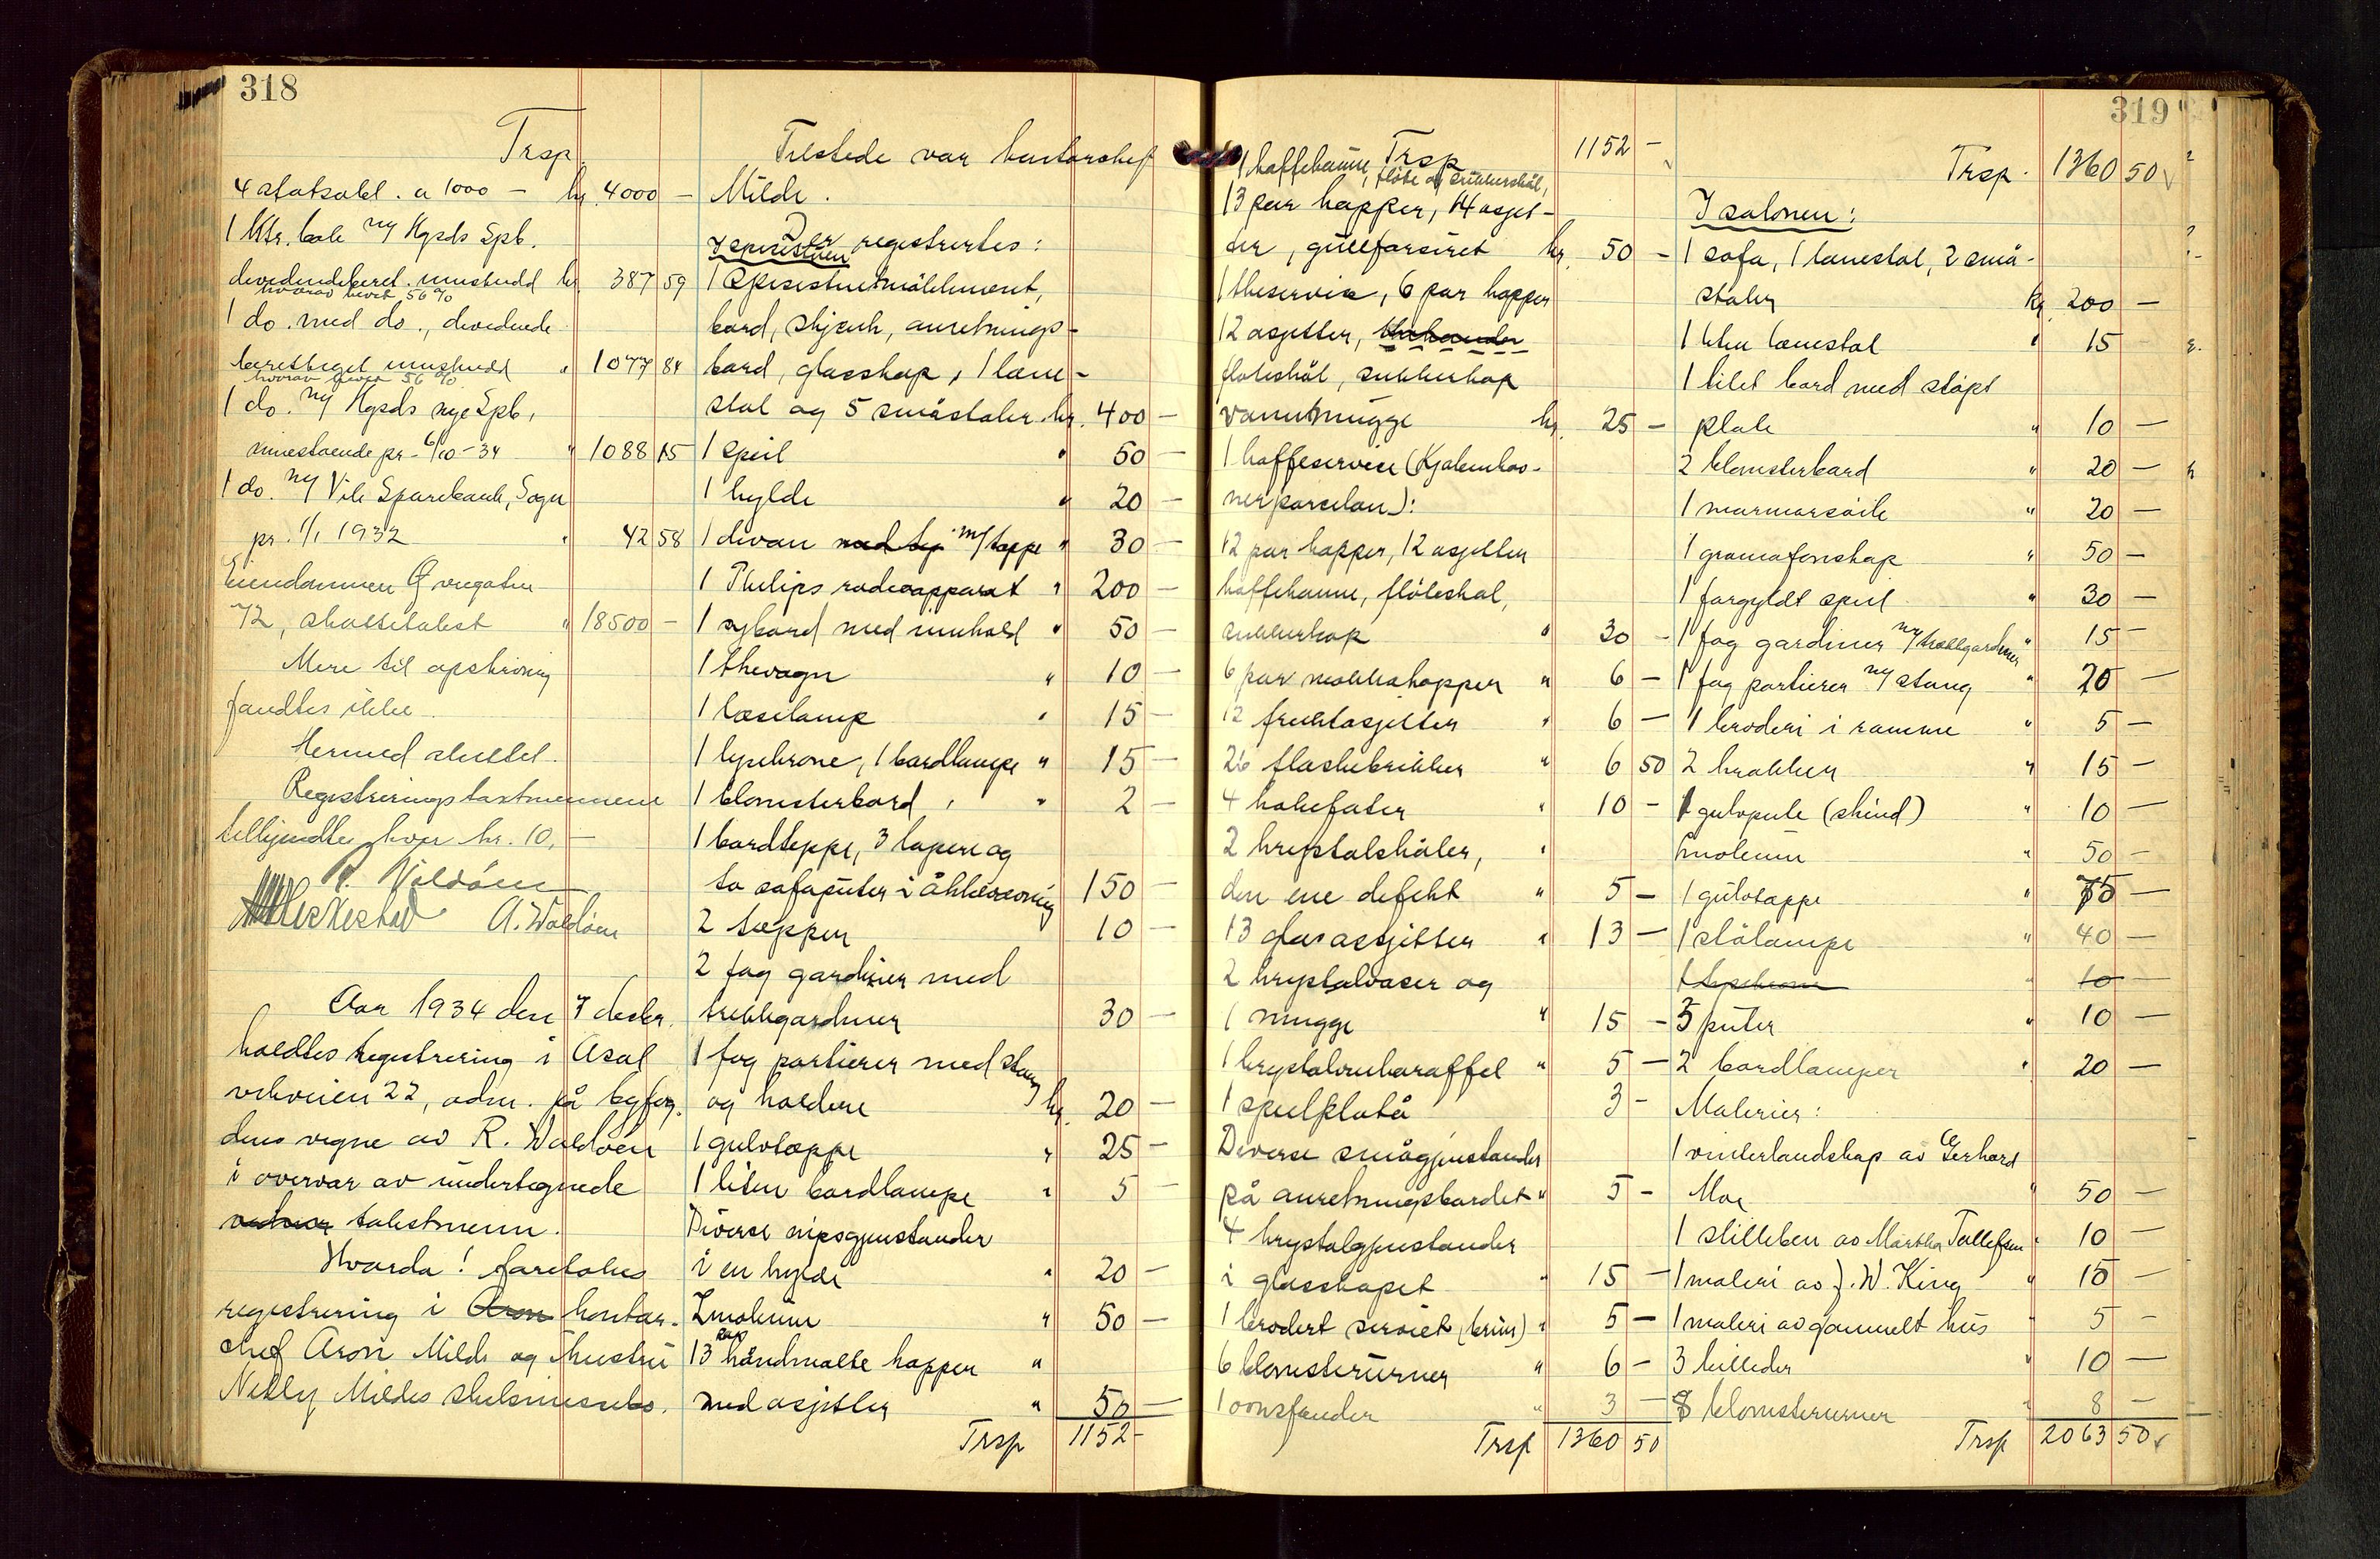 318
Trsp.
4 statsobl. a 1000 - kr. 4000 -
1 Ktr. bok m/ Hgsds Spb.
dividendeberet. innskudd kr. 387 59
hvorav hevet 56%
1 do. med do., dividende
berettiget innskudd " 1077 84
hvorav hevet 56%
1 do. m/ Hgsds nye Spb.,
innestaaende pr. 6/10-34 " 1088 15
1 do. m/ Vik Sparebank, Sogn
pr. 1/1 1932 " 42 58
Eiendommen
72, skattetakst " 18500 -
Mere til opskrivning
fandtes ikke.
Hermed sluttet.
Registreringstakstmennene
tilkjendte hver kr. 10,-
A. Waldøen
Aar 1934 den 7 desbr.
holdtes registrering i Asal
vikveien 22, adm. på byfog.
dens vegne av R. Waldøen
i overvær av undertegnede
vidner takstmenn.
Hvorda! foretokes
registrering i Aron kontor-
chef Aron Milde og hustru
Nelly Mildes skilsmissebo.
Tilstede var kontorchef
Milde.
Der registrertes:
I spisestuen
1 spisestuemøblement,
bord, skjenk, anretnings-
bord, glasskap, 1 læne-
stol og 5 småstoler kr. 400 -
1 speil " 50 -
1 hylde " 20 -
1 divan med tep m/teppe " 30 -
1 Philips radioapparat " 200 -
1 sybord med innhold " 50 -
1 thevogn " 10 -
1 læselampe " 15 -
1 lysekrone, 1 bordlampe " 15 -
1 blomsterbord " 2 -
1 bordteppe, 3 løpere og
to sofaputer i åklevevning 150 -
2 tæpper 10 -
2 fag gardiner med
trekkgardiner 30 -
1 fag portierer med stang
og holdere kr. 20 -
1 gulvtæppe " 25 -
1 liten bordlampe " 5 -
Diverse nipsgjenstander
i en hylde " 20 -
Linoleum " 50 -
13 par håndmalte kopper "
med asjetter " 50 -
Trsp 1152 -
Trsp 1152 -
1 kaffekanne, fløte og sukkerskål,
13 par kopper, 14 asjet-
ter, gullforsiret kr. 50 -
1 theservice, 6 par kopper
12 asjetter, thekander
fløteskål, sukkerkop
vannmugge kr. 25 -
1 kaffeservice (Kjøbenhav-
nerporcelan):
12 par kopper, 12 asjetter
kaffekanne, fløteskål,
sukkerkop " 30 -
6 par mokkakopper " 6 -
12 fruktasjetter " 6 -
26 flaskebrikker " 6 50
4 kakefater " 10 -
2 krystalskåler, "
den ene defekt " 5 -
13 glassasjetter " 13 -
2 krystalvaser og
1 mugge " 15 -
1 krystalvinkaraffel " 5 -
1 speilplatå 3 -
Diverse smågjenstander
på anretningsbordet " 5 -
4 krystalgjenstander
i glasskapet " 15 -
1 brodert serviet (brun) " 5 -
6 blomsterurner " 6 -
1 ovnsfender " 3 -
Trsp 1360 50
319
Trsp. 1360 50
I salonen:
1 sofa, 1 lænestol, 2 små-
stoler kr. 200 -
1 liten lænestol " 15 -
1 litet bord med støpt
plate " 10 -
2 blomsterbord " 20 -
1 marmorsøile " 20 -
1 gramofonskap " 50 -
1 forgyldt speil " 30 -
1 fag gardiner m/trekkgardiner " 15 -
1 fag portierer m/ stang " 20 -
1 broderi i ramme " 5 -
2 krakker " 15 -
1 gulvpute (skind) " 10 -
Linoleum " 50 -
1 gulvtæppe " 75 -
1 stålampe " 40 -
1 lysekrone " 10 -
5 puter " 10 -
2 bordlamper " 20 -
Malerier:
1 vinterlandskap av Gerhard
Moe " 50 -
1 stilleben av Martha Tollefsen " 10 -
1 maleri av J. W. King " 15 -
1 maleri av gammelt hus " 5 -
3 billeder " 10 -
8 blomsterurner " 8 -
Trsp 2063 50